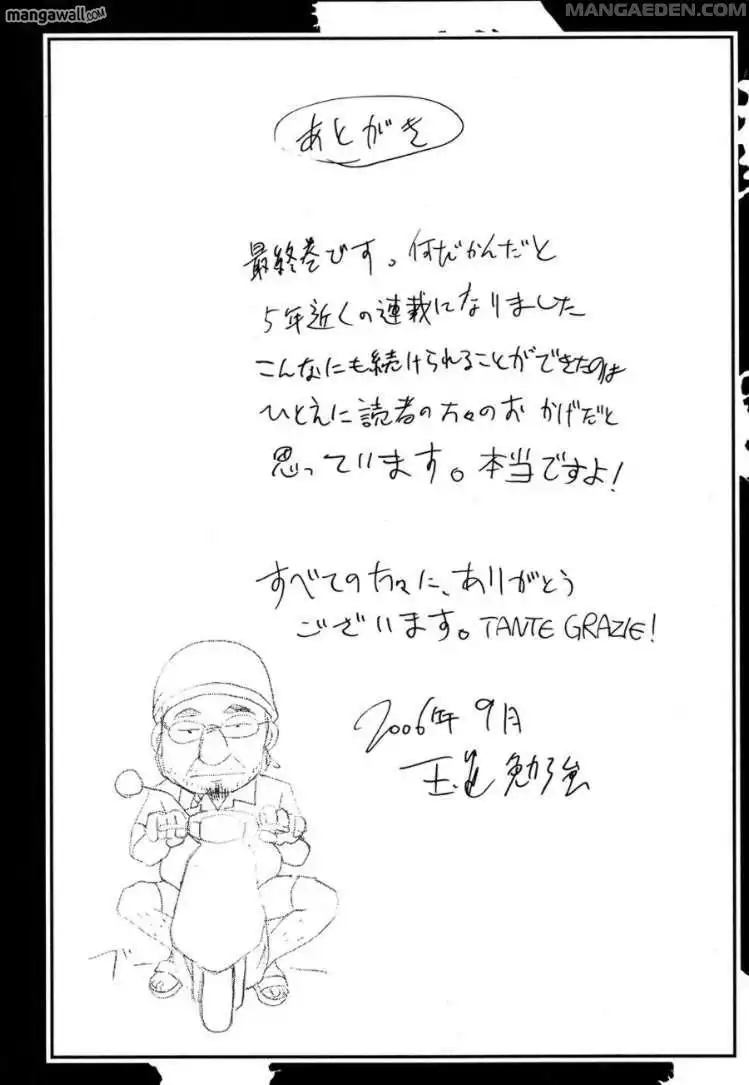 mangawall.com
MANGAEDEN.COM
あとがき
最終巻です。何だかんだと
5年近くの連載になりました
こんなにも続けられることができたのは
ひとえに読者の方々のおかげだと
思っています。本当ですよ!
すべての方々に、ありがとう
ございます。TANTE GRAZIE!
2006年9月
玉置勉強
ブー